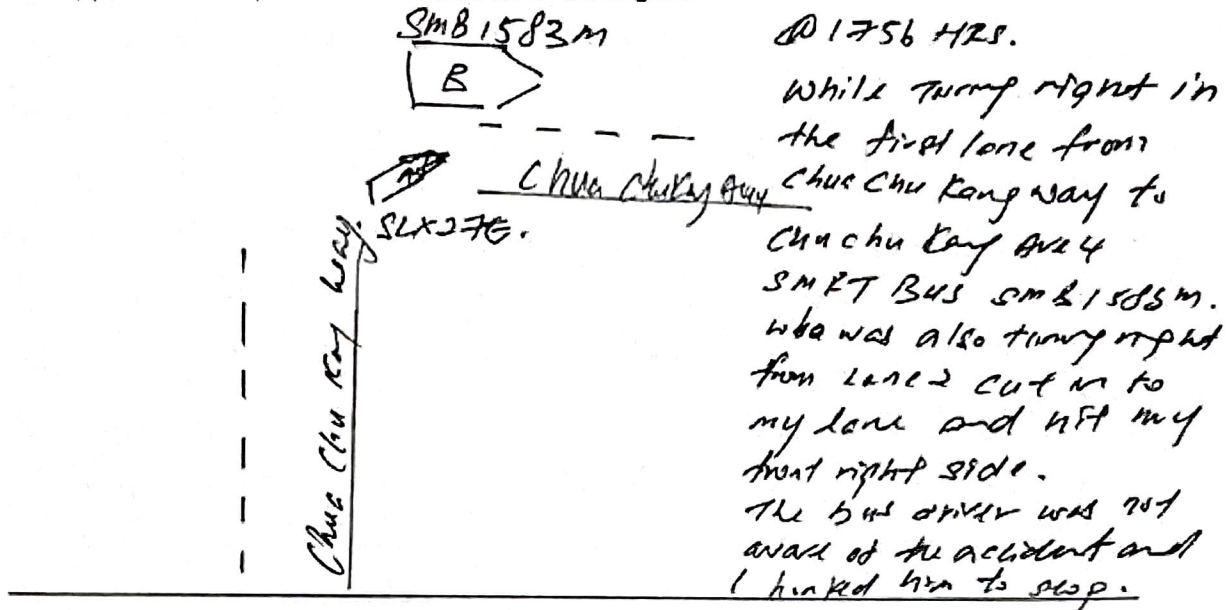 SMB1583M
B
Chua Chu Kay Ave 4
SLX27E.
Chua Chu Kay Way
@ 1756 HRS.
While Turng right in
the first lane from
Chua Chu Kang way to
Chu chu Kang Ave 4
SMRT BUS SMB1583M.
who was also turng right
from Lane 2 cut in to
my lane and hit my
front right side.
The bus driver was not
aware of the accident and
I honked him to stop.